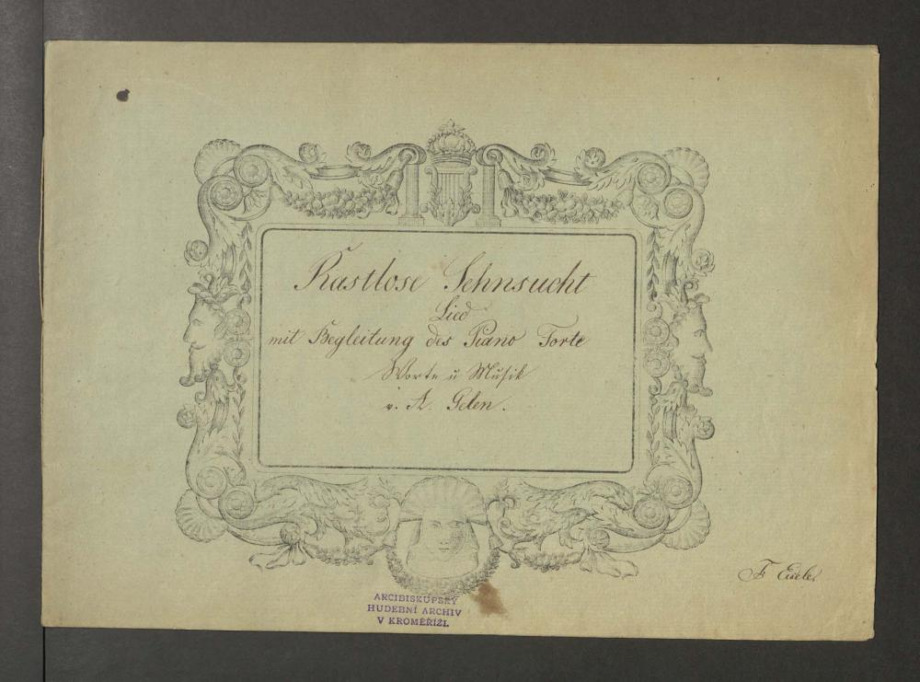 Rastlose Sehnsucht
Lied
mit Begleitung des Piano Forte
Worte u Musik
v. A.
ARCIBISKUPSKÝ
HUDEBNÍ ARCHIV
V KROMĚŘÍŽI.
F